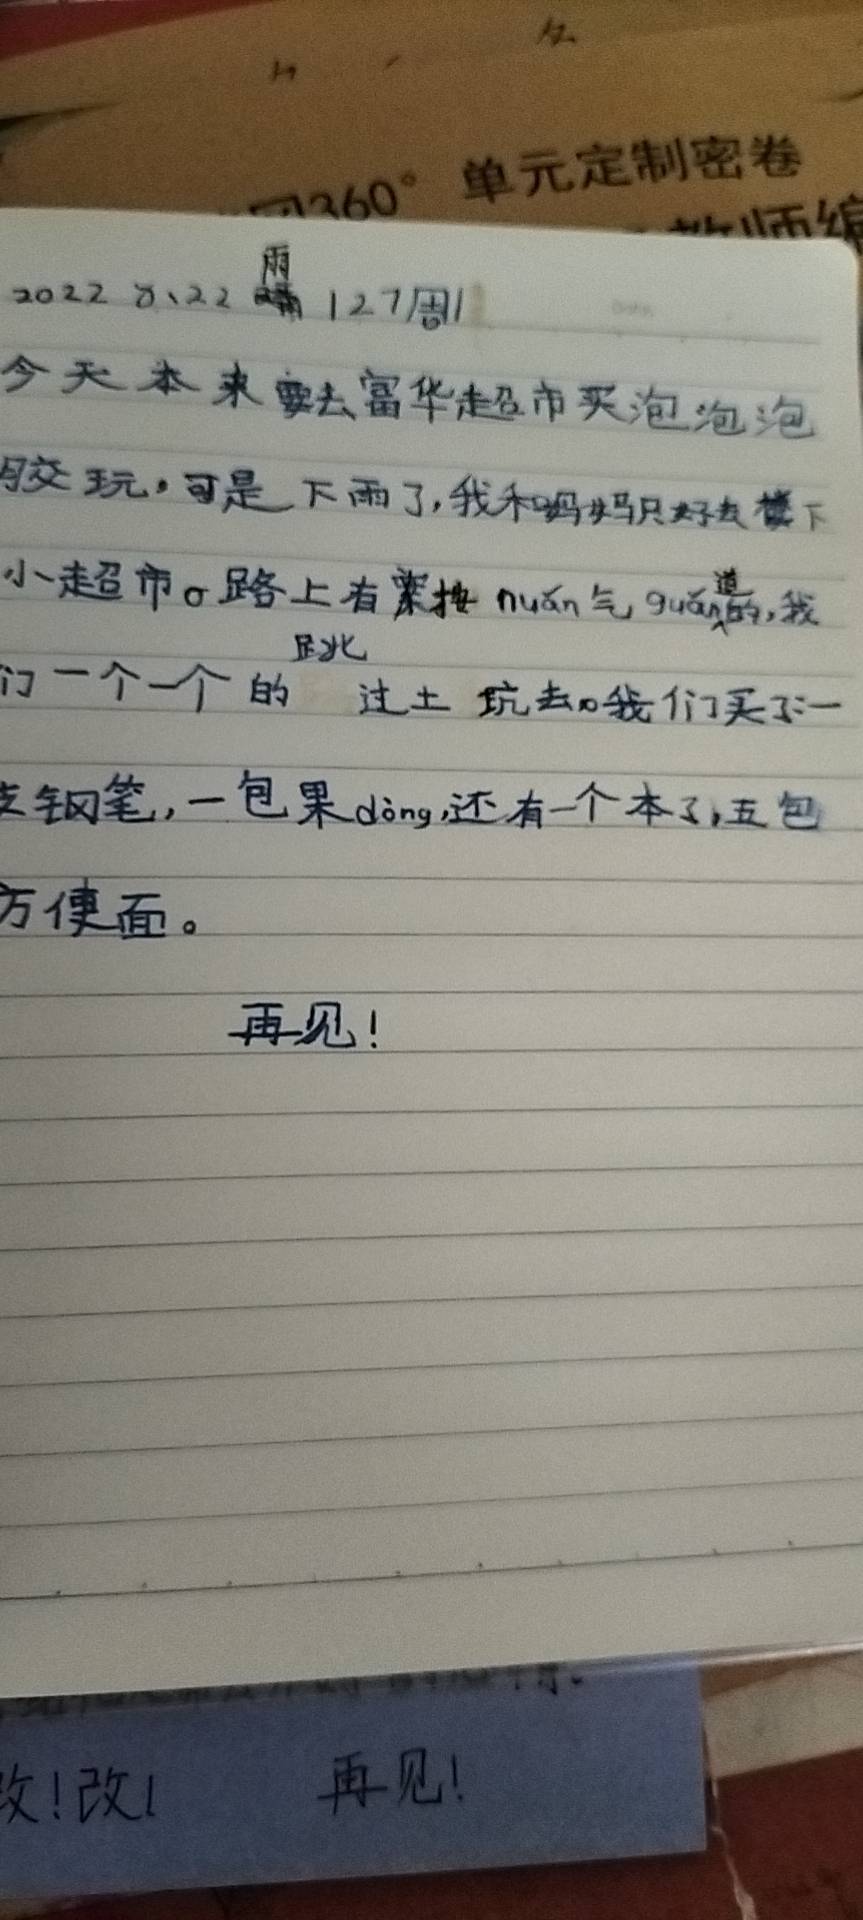 360° 单元定制密卷
教师编
雨
2022 8、22 127周1
今天本来要去富华超市买泡泡泡
胶玩,可是下雨了,我和妈妈只好去楼下
道
小超市。路上有按 nuǎn气 guǎn的,我
跳
们一个一个的 过土坑去。我们买了一
支钢笔,一包果dòng,还有一个本子,五包
方便面。
再见!
改!改!
再见!